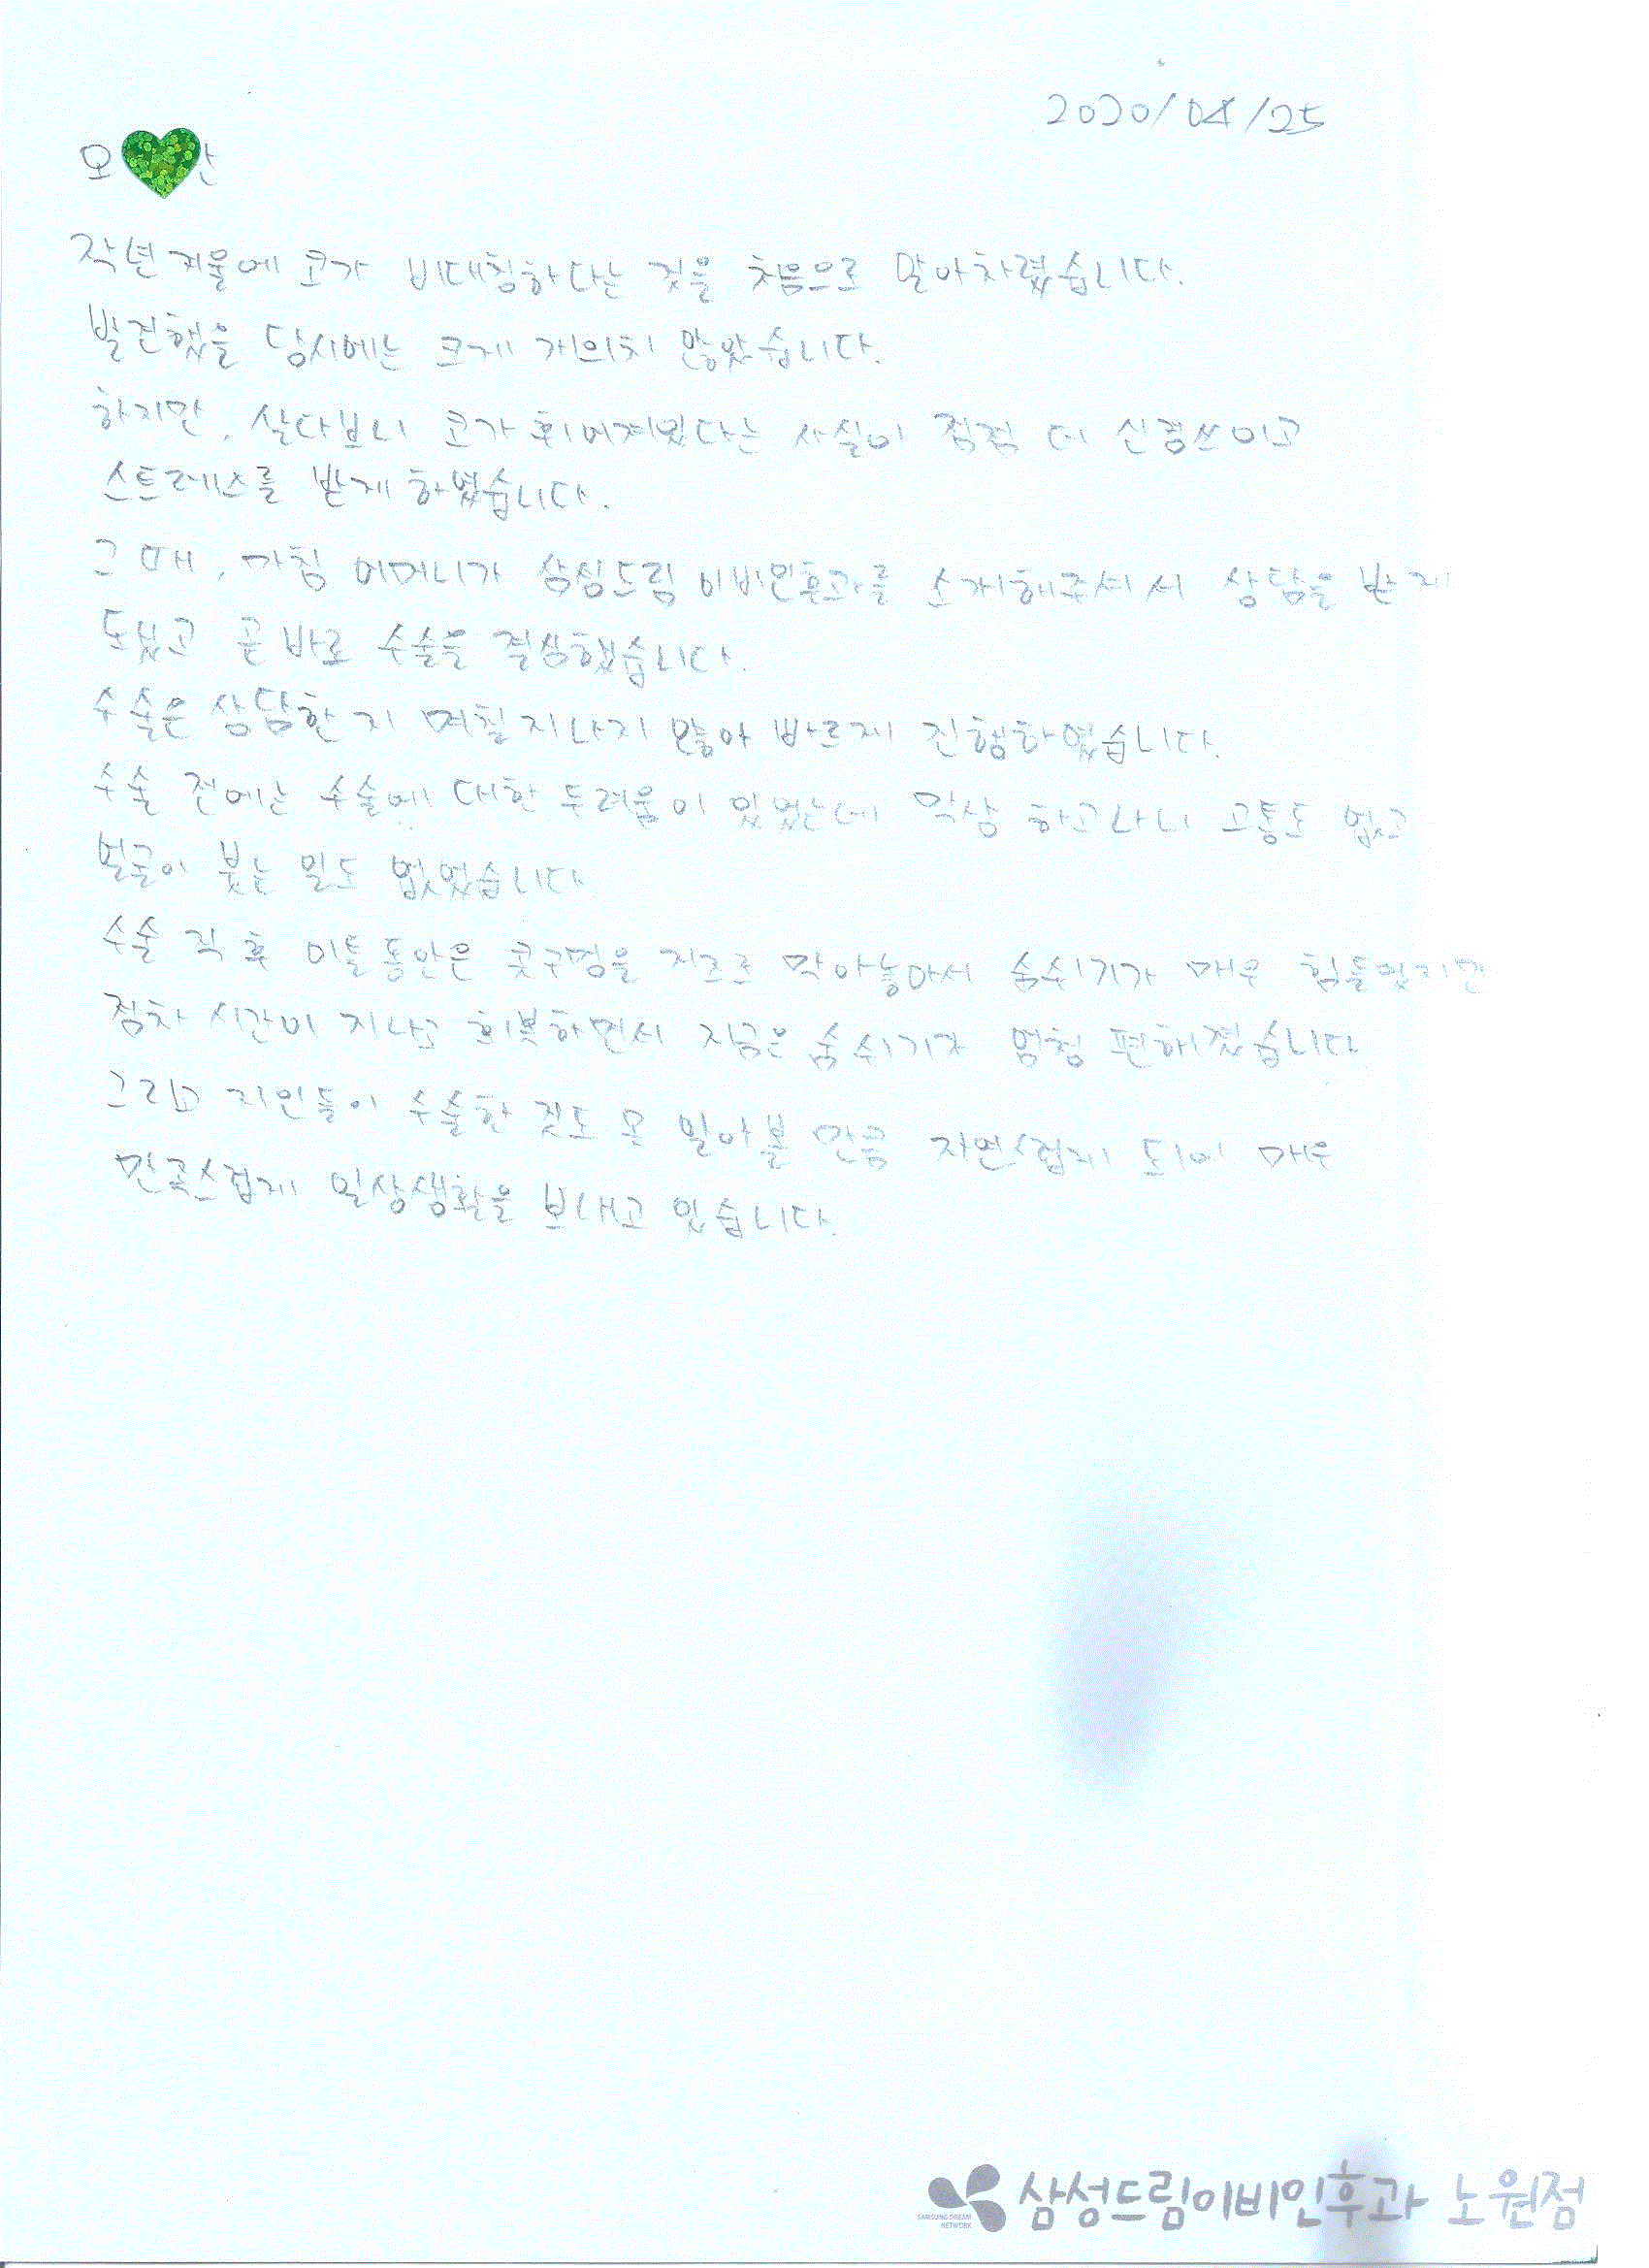 2020/04/25
오
작년 겨울에 코가 비대칭하다는 것을 처음으로 알아차렸습니다.
발견했을 당시에는 크게 개의치 않았습니다.
하지만, 살다보니 코가 휘어져있다는 사실이 점점 더 신경쓰이고
스트레스를 받게 하였습니다.
그 때, 마침 어머니가 삼성드림 이비인후과를 소개해주셔서 상담을 받게
되었고 곧바로 수술을 결심했습니다.
수술은 상담한 지 며칠 지나지 않아 빠르게 진행하였습니다.
수술 전에는 수술에 대한 두려움이 있었는데 막상 하고나니 고통도 없고
얼굴이 붓는 일도 없었습니다
수술 직후 이틀동안은 콧구멍을 거즈로 막아놓아서 숨쉬기가 매우 힘들었지만
점차 시간이 지나고 회복하면서 지금은 숨쉬기가 엄청 편해졌습니다
그리고 지인들이 수술한 것도 못 알아볼 만큼 자연스럽게 되어 매우
만족스럽게 일상생활을 보내고 있습니다.
삼성드림이비인후과 노원점
SAMSUNG DREAM
NETWORK